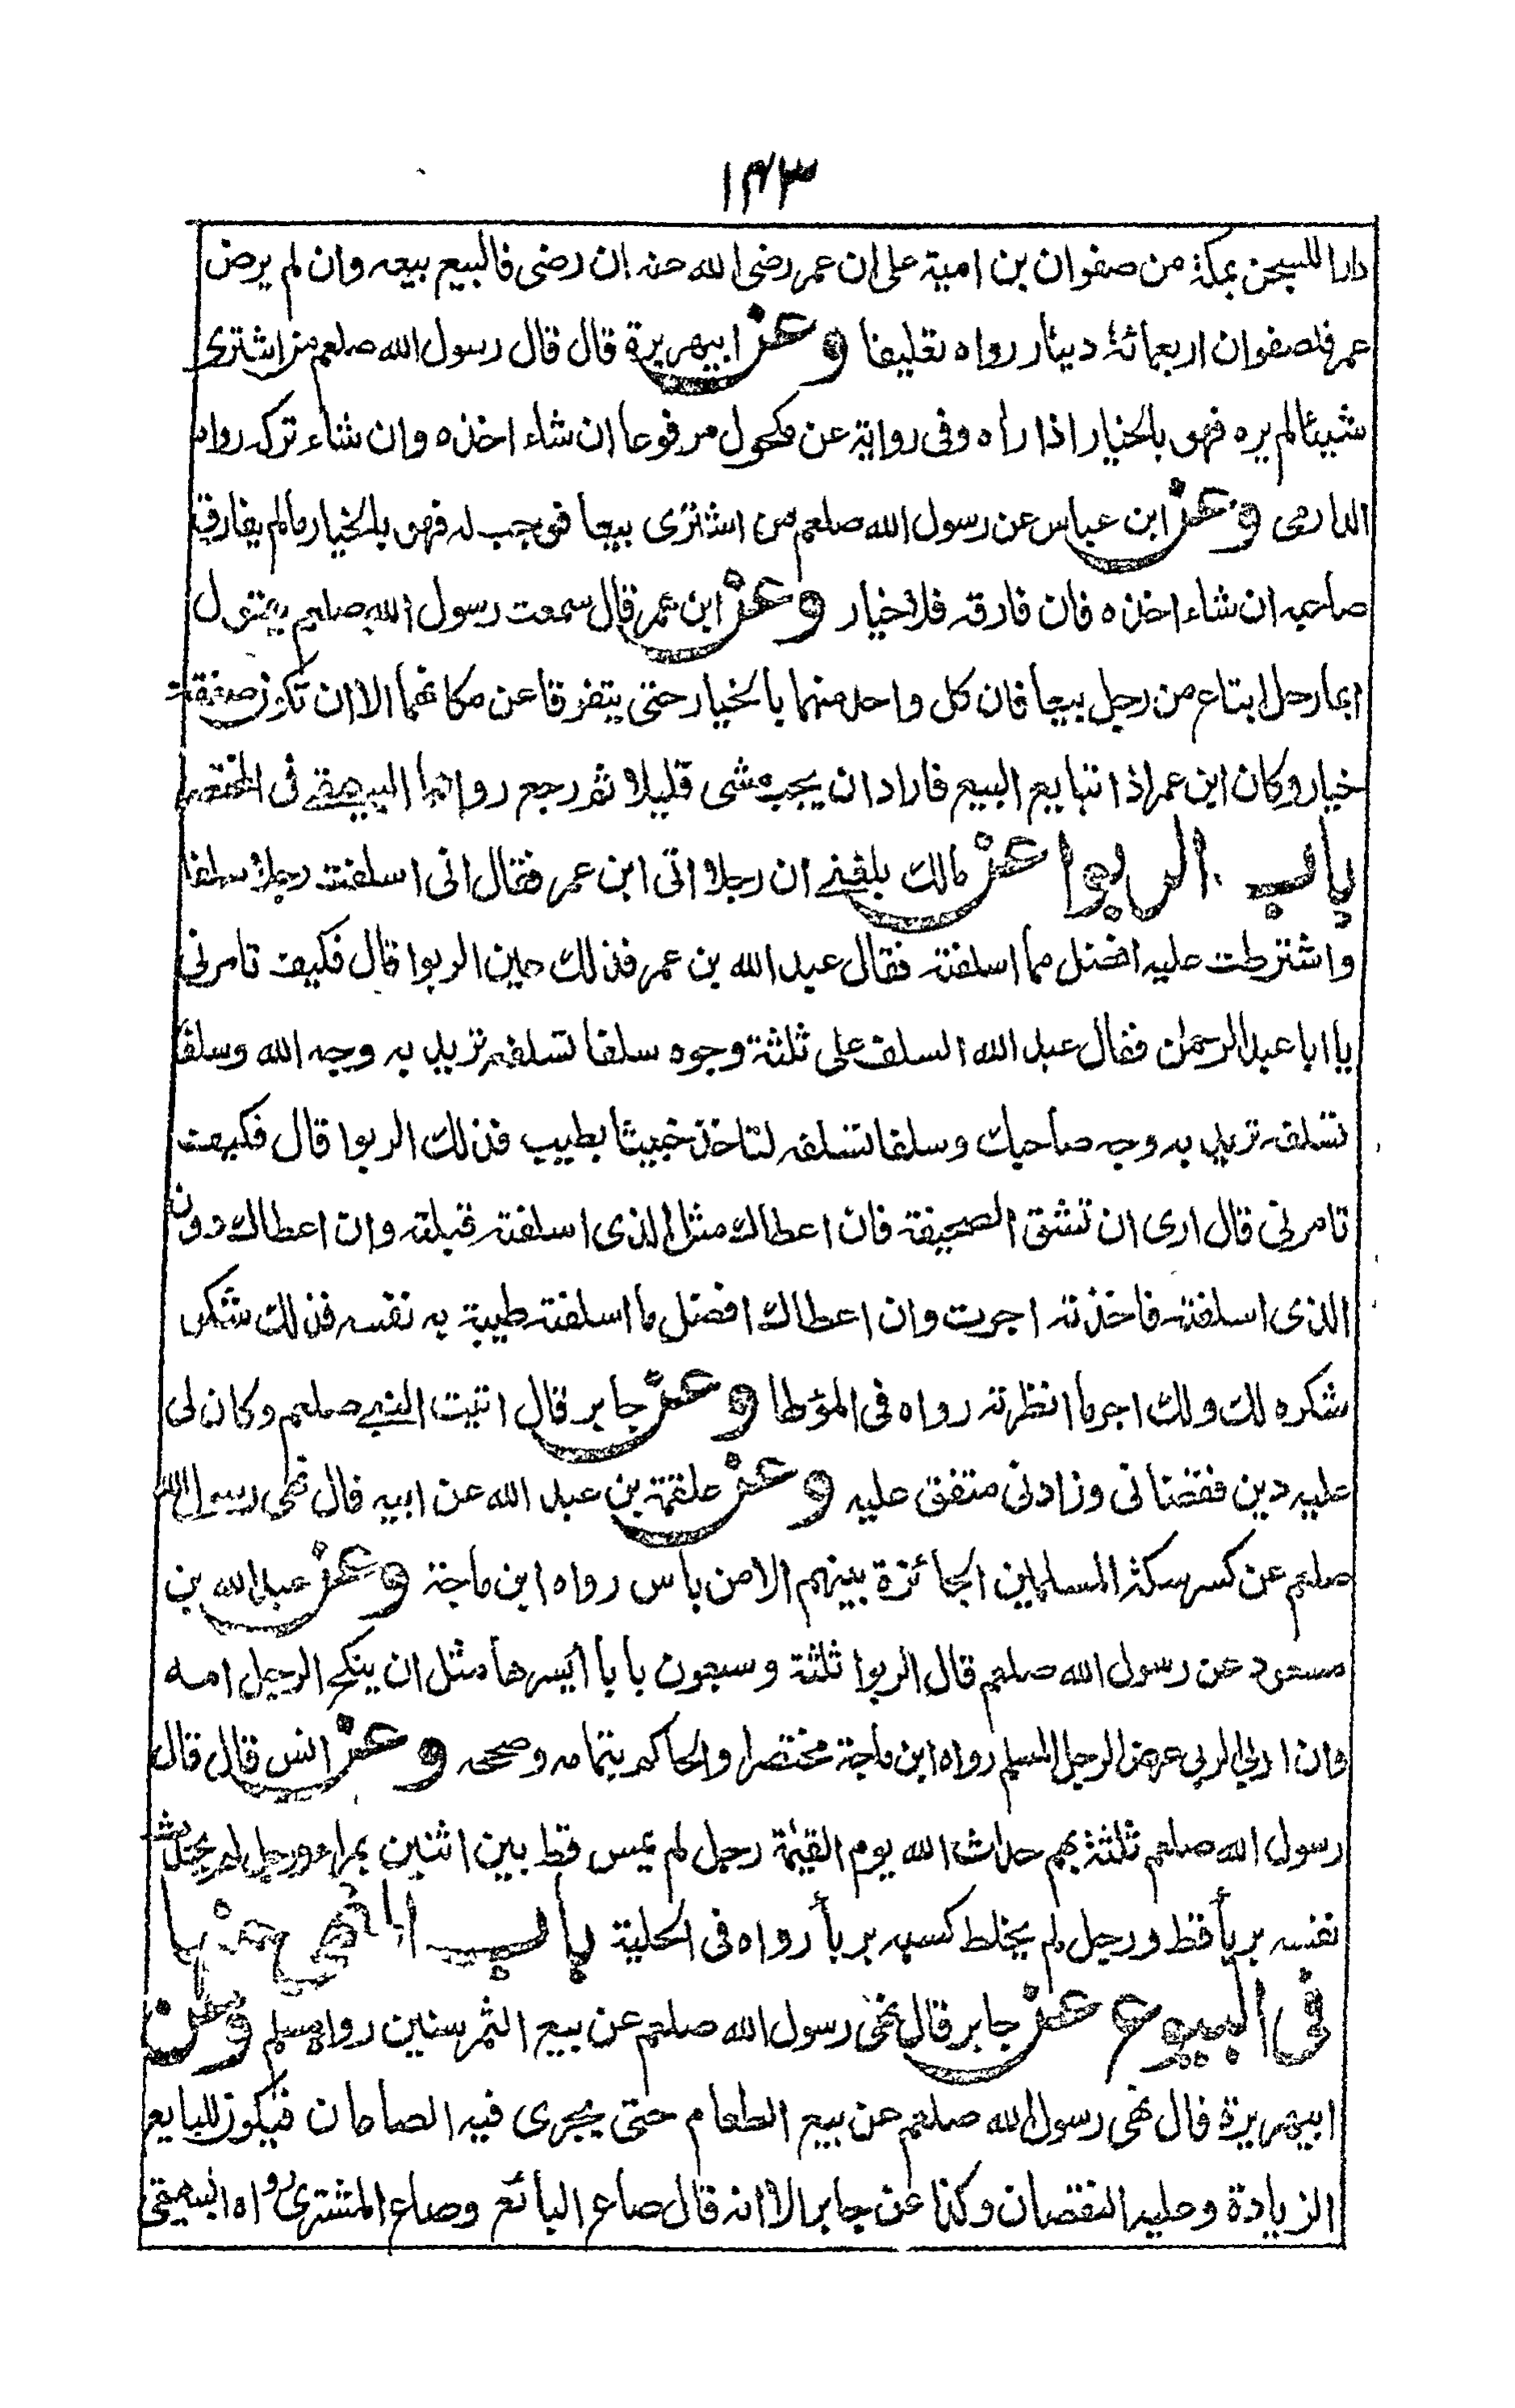 ١٤٣
دارا للسجن بمكة من صفوان بن امية على ان عمر رضى الله عنه ان رضى فالبيع بيعه وان لم يرض
عمر فلصفوان اربعمائة دينار رواه تعليقا وعن ابيهريرة قال قال رسول الله صلعم من اشترى
شيئا لم يره فهو بالخيار اذا راٰه وفى رواية عن مكحول مرفوعا ان شاء اخذه وان شاء تركه رواه
الدارمى وعن ابن عباس عن رسول الله صلعم من اشترى بيعا فوجب له فهو بالخيار مالم يفارقه
صاحبه ان شاء اخذه فان فارقه فلا خيار وعن ابن عمر قال سمعت رسول الله صلعم يقول
ايما رجل ابتاع من رجل بيعا فان كل واحد منهما بالخيار حتى يتفرقا عن مكانهما الا ان تكون صفقة
خيار وكان ابن عمر اذا تبايع البيع فاراد ان يجب مشى قليلا ثم رجع رواهما البيهقے فى المختصر
باب الربوا عن مالك بلغنے ان رجلا اتى ابن عمر فقال انى اسلفت رجلا سلفا
واشترطت عليه افضل مما اسلفته فقال عبد الله بن عمر فذلك عين الربوا قال فكيف تامرنى
يا ابا عبد الرحمٰن فقال عبد الله السلف على ثلثة وجوه سلفا تسلفه تريد به وجه الله وسلفا
تسلفه تريد به وجه صاحبك وسلفا تسلفه لتاخذ خبيثا بطيب فذلك الربوا قال فكيف
تامرنى قال ارى ان تشق الصحيفة فان اعطاك مثل الذى اسلفته قبلته وان اعطاك دون
الذى اسلفته فاخذته اجرت وان اعطاك افضل ما اسلفته طيبة به نفسه فذلك شكر
شكره لك ولك اجر ما انظرته رواه فى المؤطا وعن جابر قال اتيت النبے صلعم وكان لى
عليه دين فقضانى وزادنى متفق عليه وعن علقمة بن عبد الله عن ابيه قال نهى رسول الله
صلعم عن كسر سكة المسلمين الجائزة بينهم الا من باس رواه ابن ماجة وعن عبد الله بن
مسعود عن رسول الله صلعم قال الربوا ثلثة وسبعون بابا ايسرها مثل ان ينكح الرجل امه
وان اربى الربى عرض الرجل المسلم رواه ابن ماجة مختصرا والحاكم بتمامه وصححه وعن انس قال قال
رسول الله صلعم ثلثة هم حداث الله يوم القيٰمة رجل لم يمس قط بين اثنين بمراء ورجل لم يحدث
نفسه بربا قط ورجل لم يخلط كسبه بربا رواه فى الحلية باب المنهى عنها
فى البيوع عن جابر قال نهى رسول الله صلعم عن بيع الثمر سنين رواه مسلم وعن
ابيهريرة قال نهى رسول الله صلعم عن بيع الطعام حتى يجرى فيه الصاعان فيكون للبايع
الزيادة وعليه النقصان وكذا عن جابر الا انه قال صاع البائع وصاع المشترى رواه البيهقى